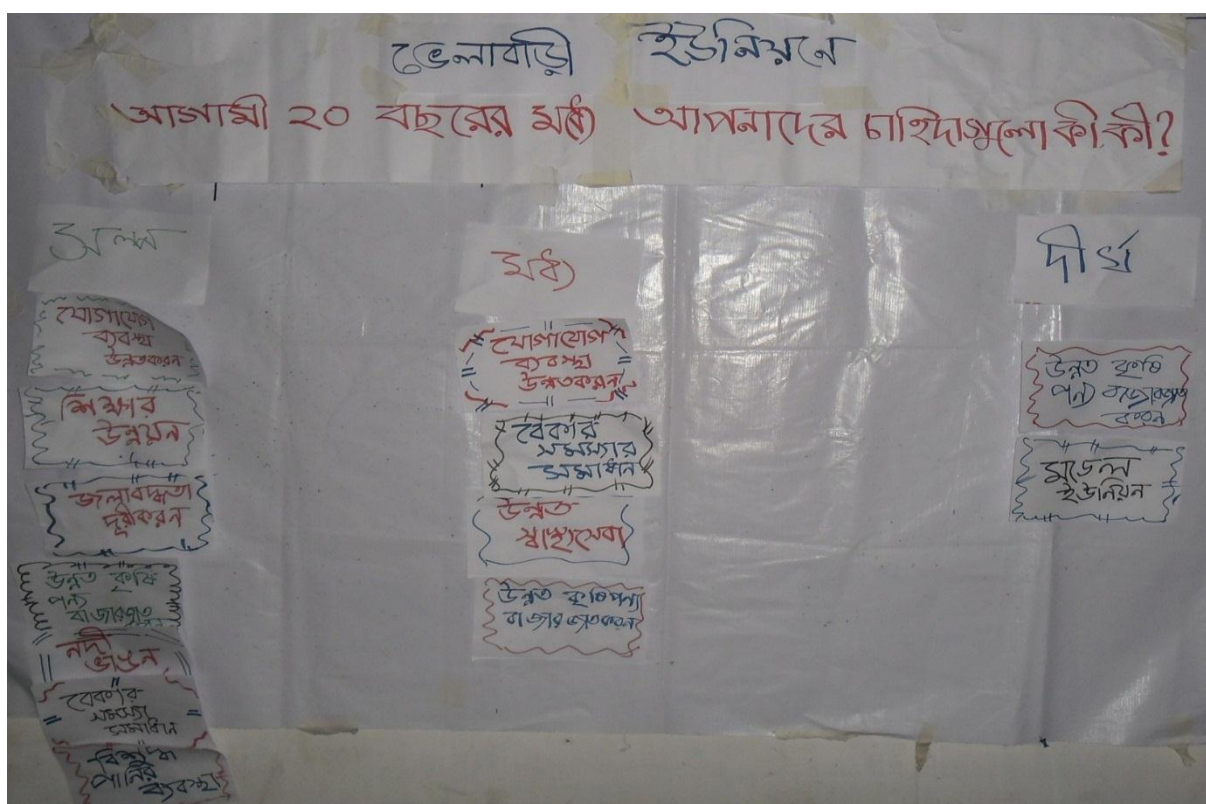 ভেলাবাড়ী ইউনিয়নে
আগামী ২০ বছরের মধ্যে আপনাদের চাহিদাগুলো কী কী?
অল্প
যোগাযোগ
ব্যবস্থা
উন্নতকরন
শিক্ষার
উন্নয়ন
জলাবদ্ধতা
দূরীকরন
উন্নত কৃষি
পন্য
নদী
ভাঙন
বেকার
সমস্যা
সমাধান
বিশুদ্ধ
পানির
ব্যবস্থা
মধ্য
যোগাযোগ
ব্যবস্থা
উন্নতকরন
বেকার
সমস্যার
সমাধান
উন্নত
স্বাস্থ্যসেবা
উন্নত কৃষিপন্য
বাজারজাতকরন
দীর্ঘ
উন্নত কৃষি
পন্য বাজারজাত
করন
মডেল
ইউনিয়ন